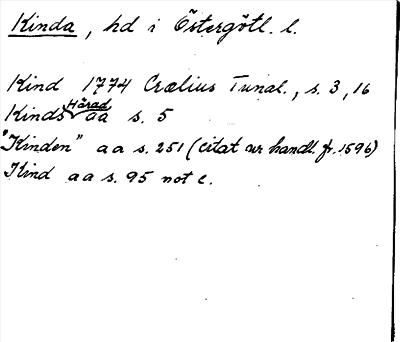 Kinda, hd i Östergötl. l.
Kind 1774 Crælius Tunal., s. 3, 16
Kinds Härad aa s. 5
"Kinden" aa s. 251 (citat ur handl. fr. 1596)
Kind aa s. 95 not c.